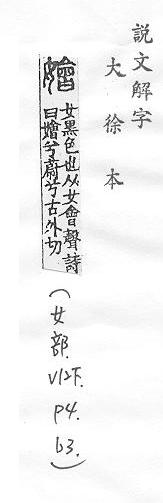 説文解字
大徐本
嬒
女黑色也从女會聲詩
曰嬒兮蔚兮古外切
(女部. V12下. P4. b3.)